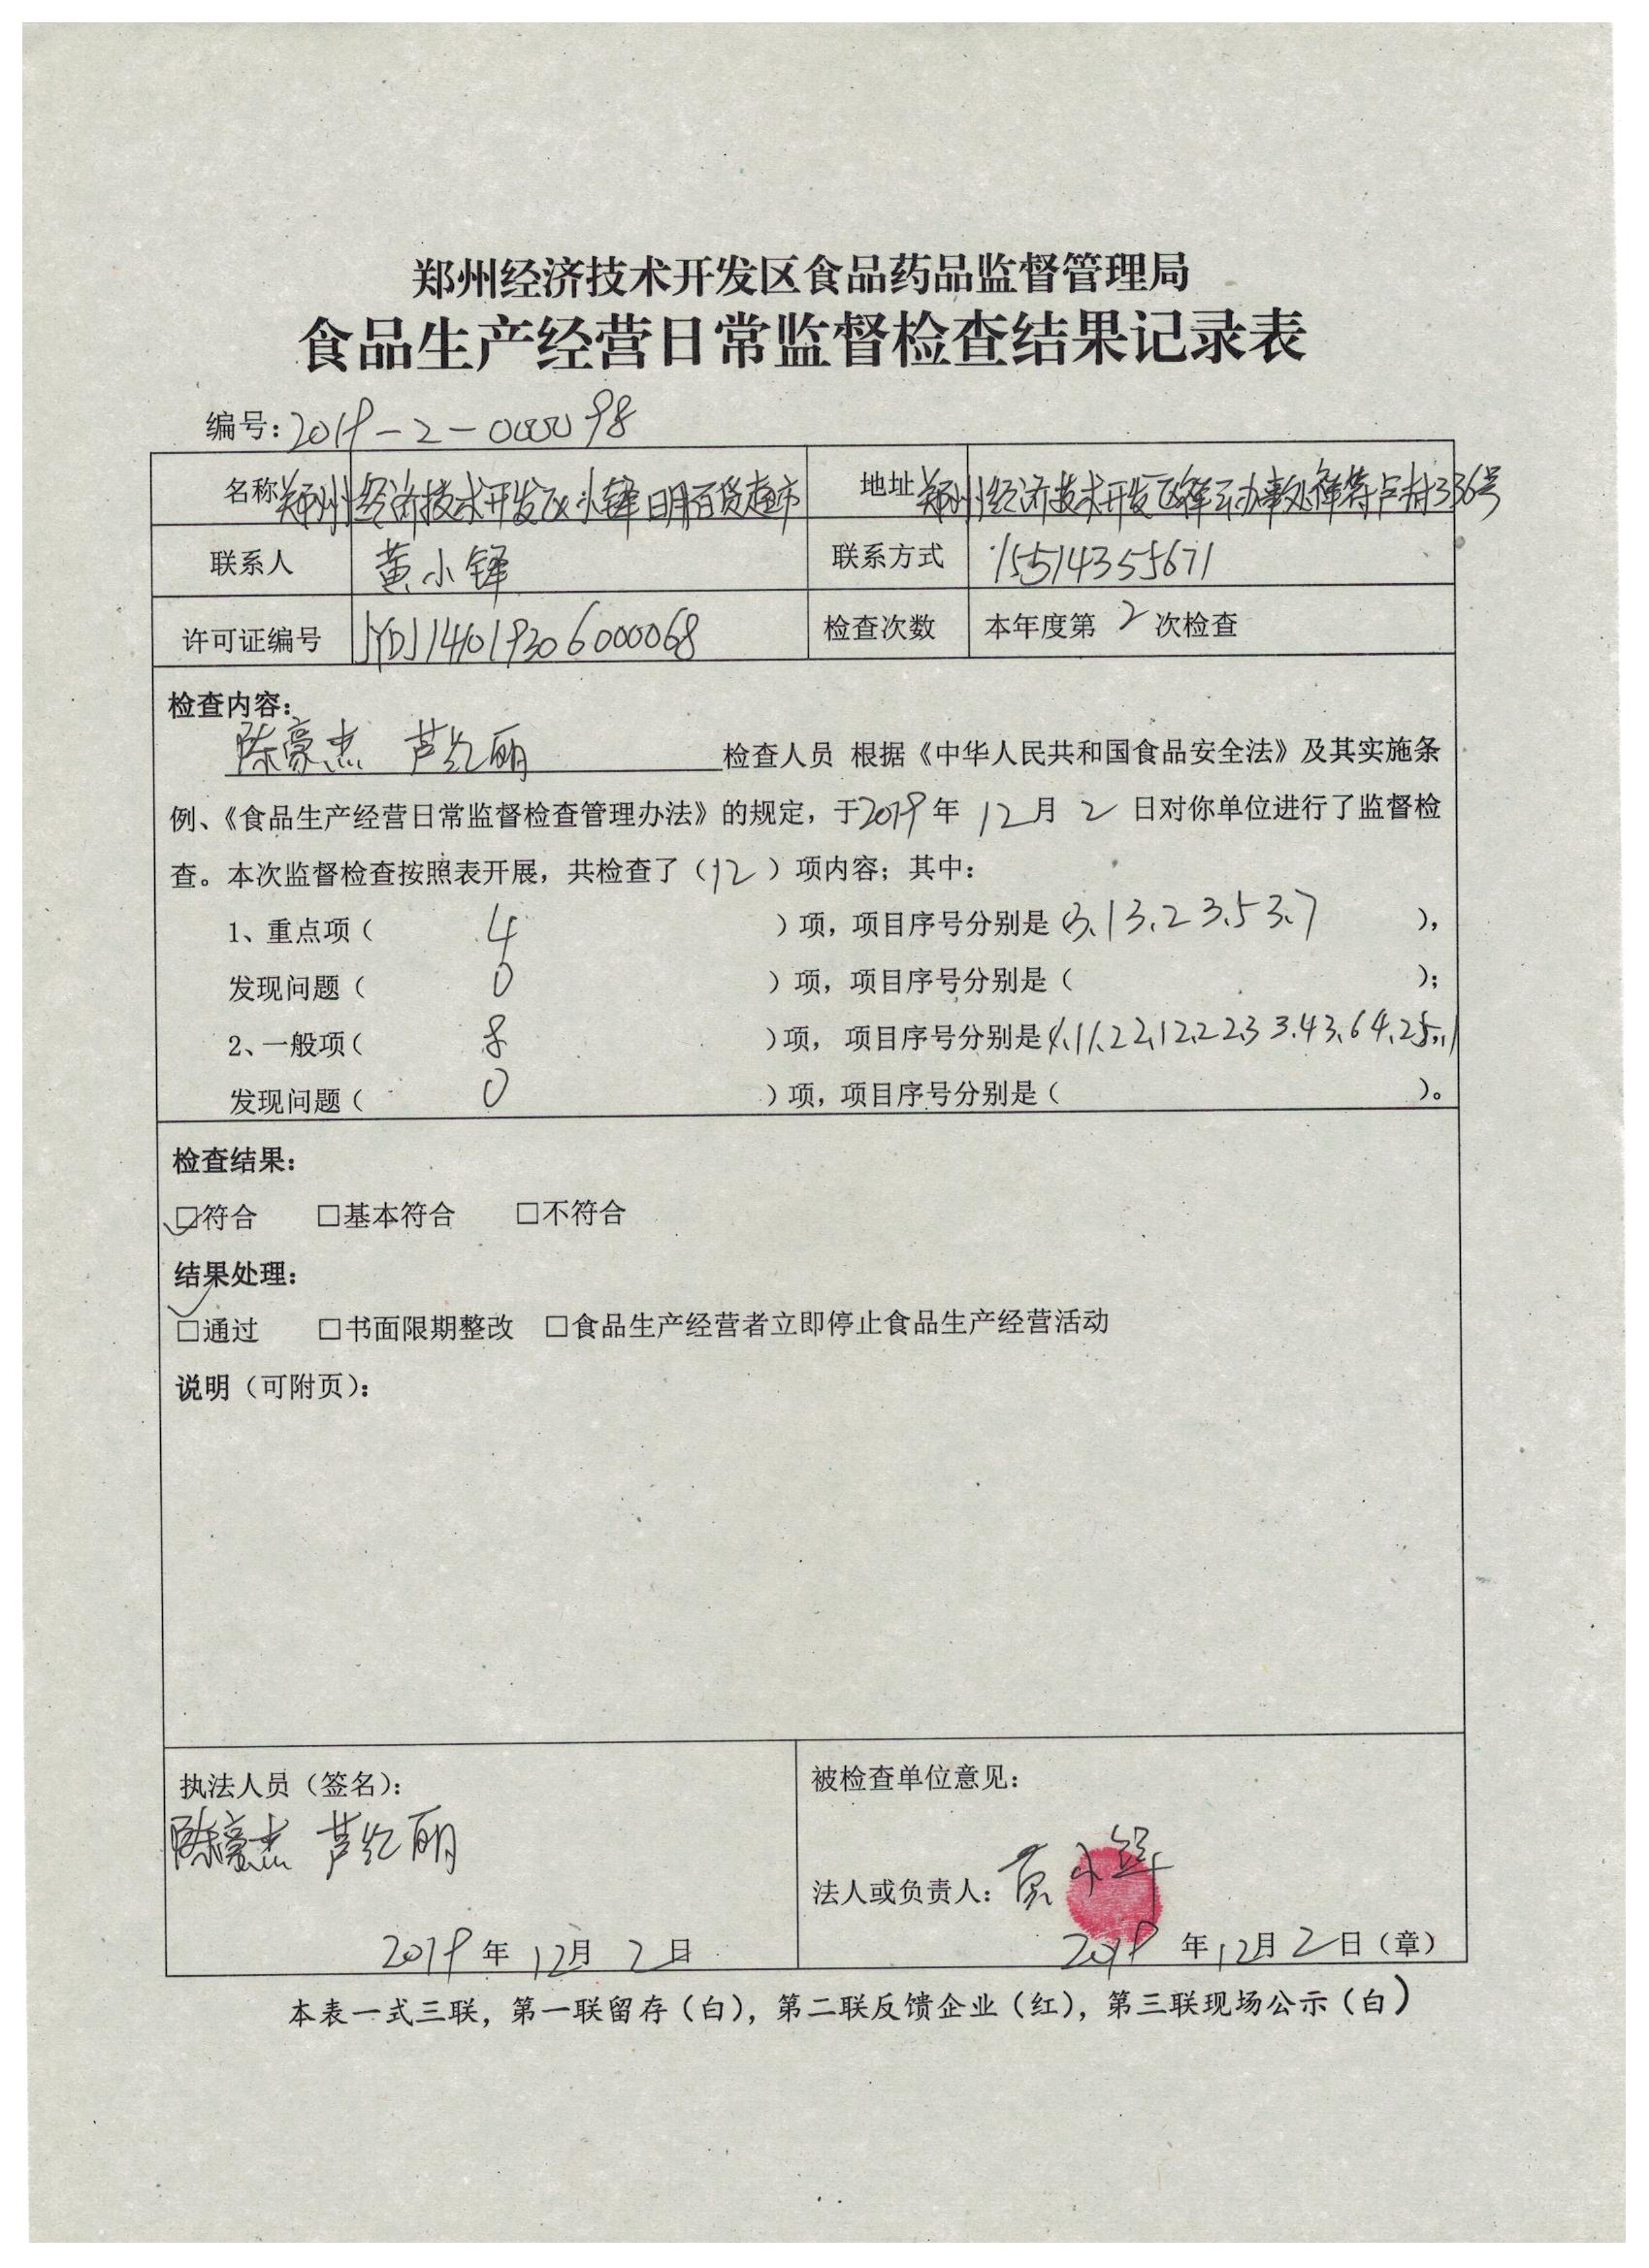 郑州经济技术开发区食品药品监督管理局
食品生产经营日常监督检查结果记录表
编号:2019-2-000098
名称 郑州经济技术开发区小铎日用百货超市 地址 郑州经济技术开发区祥云办事处祥符卢村336号
联系人 黄小铎 联系方式 15514355671
许可证编号 JYDJ141019306000068 检查次数 本年度第2次检查
检查内容:
陈豪杰 芦红丽 检查人员 根据《中华人民共和国食品安全法》及其实施条
例、《食品生产经营日常监督检查管理办法》的规定，于2019年12月2日对你单位进行了监督检
查。本次监督检查按照表开展，共检查了（12）项内容；其中:
1、重点项（4）项，项目序号分别是 3.13.23.53.7），
发现问题（0）项，项目序号分别是（ ）；
2、一般项（8）项， 项目序号分别是
发现问题（0）项，项目序号分别是（ ）。
检查结果:
☑符合 □基本符合 □不符合
结果处理:
☑通过 □书面限期整改 □食品生产经营者立即停止食品生产经营活动
说明（可附页）:
执法人员（签名）: 被检查单位意见:
陈豪杰 芦红丽
法人或负责人: 黄小铎
2019年12月2日 2019年12月2日（章）
本表一式三联，第一联留存（白），第二联反馈企业（红），第三联现场公示（白）